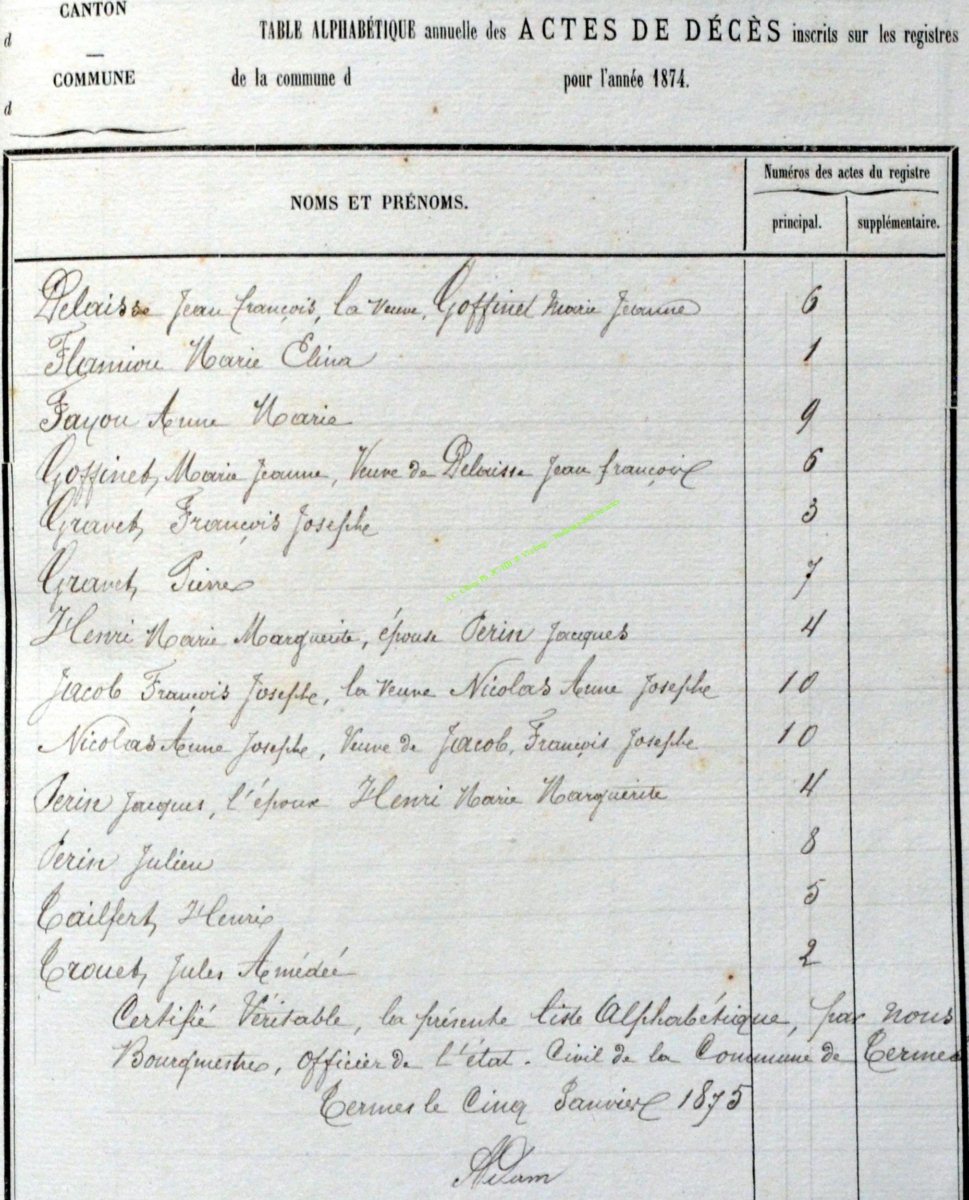 CANTON
d
COMMUNE
d
TABLE ALPHABÉTIQUE annuelle des ACTES DE DÉCÈS inscrits sur les registres
de la commune d pour l'année 1874.
NOMS ET PRÉNOMS.
Numéros des actes du registre
principal. supplémentaire.
Delaisse Jean françois, la veuve, Goffinet Marie Jeanne 6
Flamion Marie Elina 1
Fayon Anne Marie 9
Goffinet, Marie Jeanne, Veuve de Delaisse Jean françois 6
Gravet, François Josephe 3
Gravet, Pierre 7
Henri Marie Marguerite, épouse Perin Jacques 4
Jacob François Josephe, la veuve Nicolas Anne Josephe 10
Nicolas Anne Josephe, Veuve de Jacob, François Josephe 10
Perin Jacques, l'époux Henri Marie Marguerite 4
Perin Julien 8
Tailfert, Henri 5
Trouet, Jules Amédée 2
Certifié Véritable, la présente liste Alphabétique, par nous
Bourgmestre, officier de l'état-Civil de la Commune de Termes
Termes le Cinq Janvier 1875
Adam